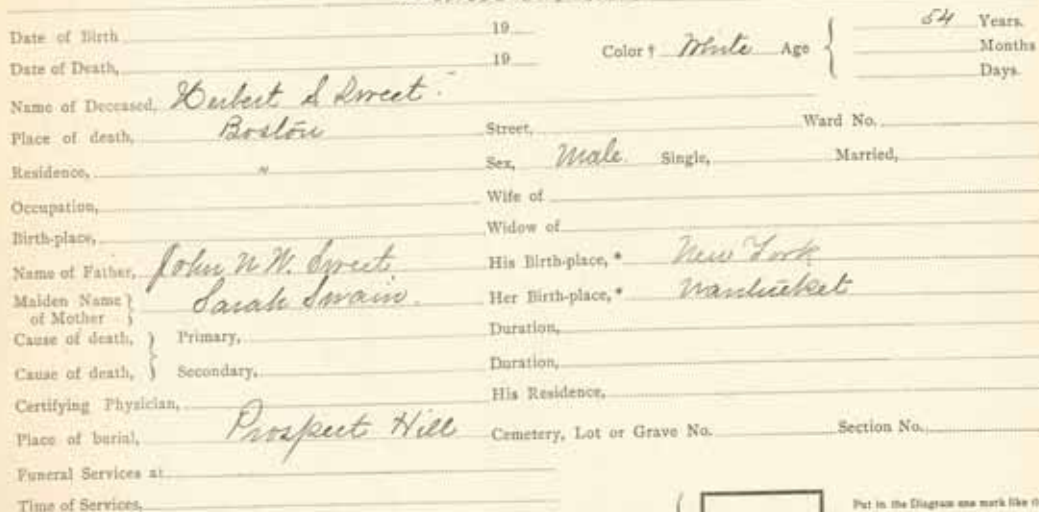 Date of Birth 19 Color † White Age 54 Years.
Months
Date of Death, 19 Days.
Name of Deceased, Herbert S Sweet.
Place of death, Boston Street, Ward No.
Residence, " Sex, Male. Single, Married,
Occupation, Wife of
Birth-place, Widow of
Name of Father, John N W. Sweet. His Birth-place, * New York
Maiden Name of Mother } Sarah Swain. Her Birth-place, * Nantucket
Cause of death, } Primary, Duration,
Cause of death, } Secondary, Duration,
Certifying Physician, His Residence,
Place of burial, Prospect Hill Cemetery, Lot or Grave No. Section No.
Funeral Services at
Time of Services,
Put in the Diagram one mark like